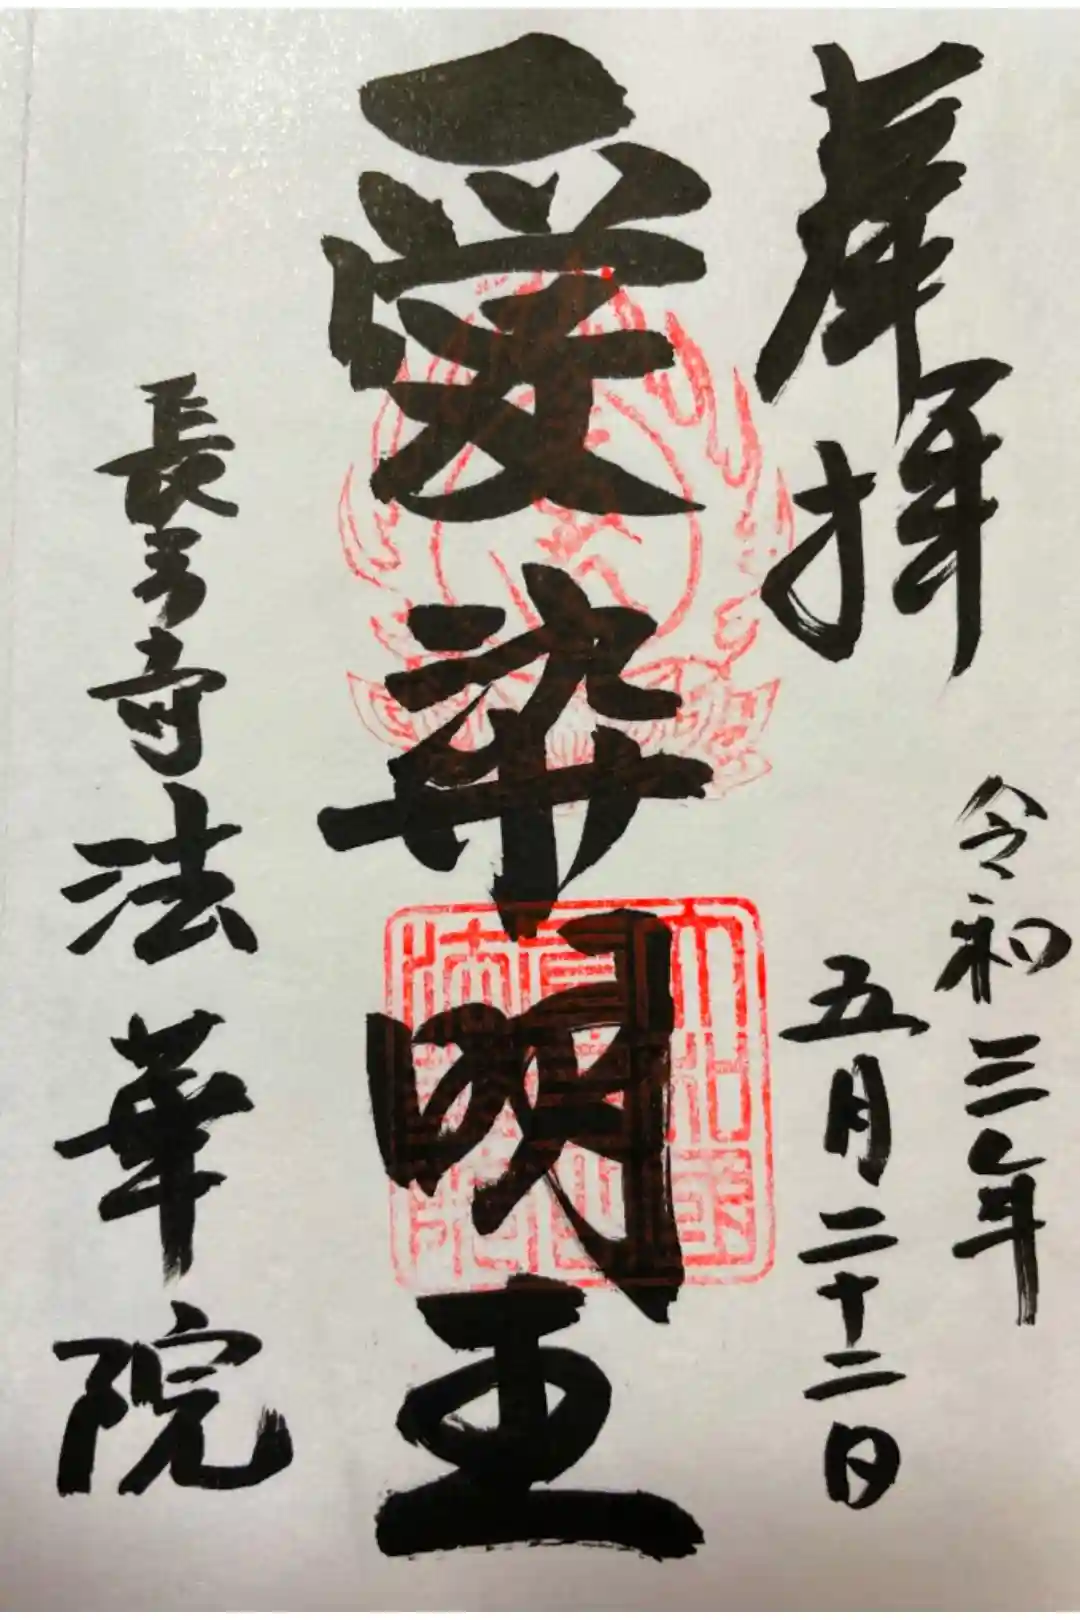 奉拝
令和三年
五月二十二日
愛染明王
長弓寺法華院
大和國